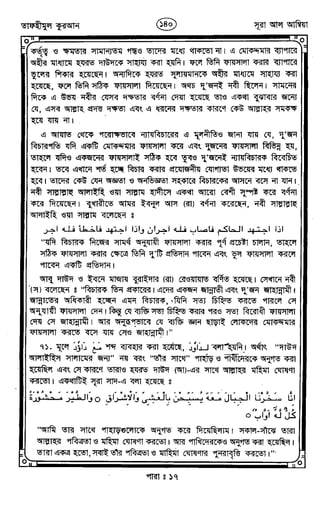 তাফহীমুল কুরআন
১৪০
সূরা আল আম্বিয়া
কর্তৃত্ব ও ক্ষমতার সামান্যতম গন্ধও তাদের মধ্যে থাকতো না। এ মোকদ্দমার ব্যাপারে
অহীর মাধ্যমে হযরত দাউদকে সাহায্য করা হয়নি। ফলে তিনি ফায়সালা করার ব্যাপারে
ভুলের শিকার হয়েছেন। অন্যদিকে হযরত সুলায়মানকে অহীর মাধ্যমে সাহায্য করা
হয়েছে, ফলে তিনি সঠিক ফায়সালা দিয়েছেন। অথচ দু'জনই নবী ছিলেন। সামনের
দিকে এ উভয় নবীর যেসব দক্ষতার বর্ণনা দেয়া হয়েছে তাও একথা বুঝাবার জন্যে
যে, এসব আল্লাহ প্রদত্ত দক্ষতা এবং এ ধরনের দক্ষতার কারণে কেউ আল্লাহর সমকক্ষ
হয়ে যায় না।
এ আয়াত থেকে পরোক্ষভাবে ন্যায়বিচারের এ মূলনীতিও জানা যায় যে, দু'জন
বিচারপতি যদি একটি মোকদ্দমার ফায়সালা করে এবং দু'জনের ফায়সালা বিভিন্ন হয়,
তাহলে যদিও একজনের ফায়সালাই সঠিক হবে তবুও দু'জনেই ন্যায়বিচারক বিবেচিত
হবেন। তবে এখানে শর্ত হচ্ছে বিচার করার প্রয়োজনীয় যোগ্যতা উভয়ের মধ্যে থাকতে
হবে। তাদের কেউ যেন অজ্ঞতা ও অনভিজ্ঞতা সহকারে বিচারকের আসনে বসে না যান।
নবী সাল্লাল্লাহু আলাইহি ওয়া সাল্লাম হাদীসে একথা আরো বেশী সুস্পষ্ট করে বর্ণনা
করে দিয়েছেন। বুখারীতে আমর ইবনুল আস (রা) বর্ণনা করেছেন, নবী সাল্লাল্লাহু
আলাইহি ওয়া সাল্লাম বলেছেন ঃ
اذا اجتهد الحاكم فاصاب فله اجران واذا اجتهد فاخطأ فله اجر
"যদি বিচারক নিজের সামর্থ অনুযায়ী ফায়সালা করার পূর্ণ প্রচেষ্টা চালান, তাহলে
সঠিক ফায়সালা করার ক্ষেত্রে তিনি দু'টি প্রতিদান পাবেন এবং ভুল ফায়সালা করলে
পাবেন একটি প্রতিদান।"
আবু দাউদ ও ইবনে মাজায় বুরাইদার (রা) রেওয়ায়াত উদ্ধৃত হয়েছে। সেখানে নবী
(স) বলেছেন ঃ "বিচারক তিন প্রকারের। এদের একজন জান্নাতী এবং দু'জন জাহান্নামী।
জান্নাতের অধিকারী হচ্ছেন এমন বিচারক, যিনি সত্য চিহ্নিত করতে পারলে সে
অনুযায়ী ফায়সালা দেন। কিন্তু যে ব্যক্তি সত্য চিহ্নিত করার পরও সত্য বিরোধী ফায়সালা
দেয় সে জাহান্নামী। আর অনুরূপভাবে যে ব্যক্তি জ্ঞান ছাড়াই লোকদের মোকদ্দমার
ফায়সালা করতে বসে যায় সেও জাহান্নামী।"
৭১. মূলে مَعَ دَاوُدَ শব্দ ব্যবহার করা হয়েছে, لِدَاوُدَ বলা হয়নি। অর্থাৎ "দাউদ
আলাইহিস সালামের জন্য" নয় বরং "তাঁর সাথে" পাহাড় ও পাখীদেরকে অনুগত করা
হয়েছিল এবং সে কারণে তারাও হযরত দাউদ (আ)-এর সাথে আল্লাহর মহিমা ঘোষণা
করতো। একথাটিই সূরা সাদ-এ বলা হয়েছে ঃ
اِنَّا سَخَّرْنَا الْجِبَالَ مَعَهُ يُسَبِّحْنَ بِالْعَشِيِّ وَالْاِشْرَاقِ ٥ وَالطَّيْرَ مَحْشُوْرَةً
كُلٌّ لَّهٗ اَوَّابٌ ٥
"আমি তার সাথে পাহাড়গুলোকে অনুগত করে দিয়েছিলাম। সকাল-সাঁঝে তারা
আল্লাহর পবিত্রতা ও মহিমা ঘোষণা করতো। আর পাখিদেরকেও অনুগত করা হয়েছিল।
তারা একত্র হতো, সবাই তাঁর পবিত্রতা ও মহিমা ঘোষণার পুনরাবৃত্তি করতো।"
পারা ঃ ১৭